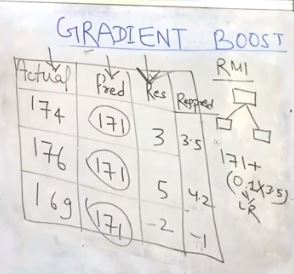 GRADIENT BOOST
Actual Pred Res Respred
174 171 3 3.5
176 171 5 4.2
169 171 -2 -1
RM1
171+
(0.1X3.5)
LR